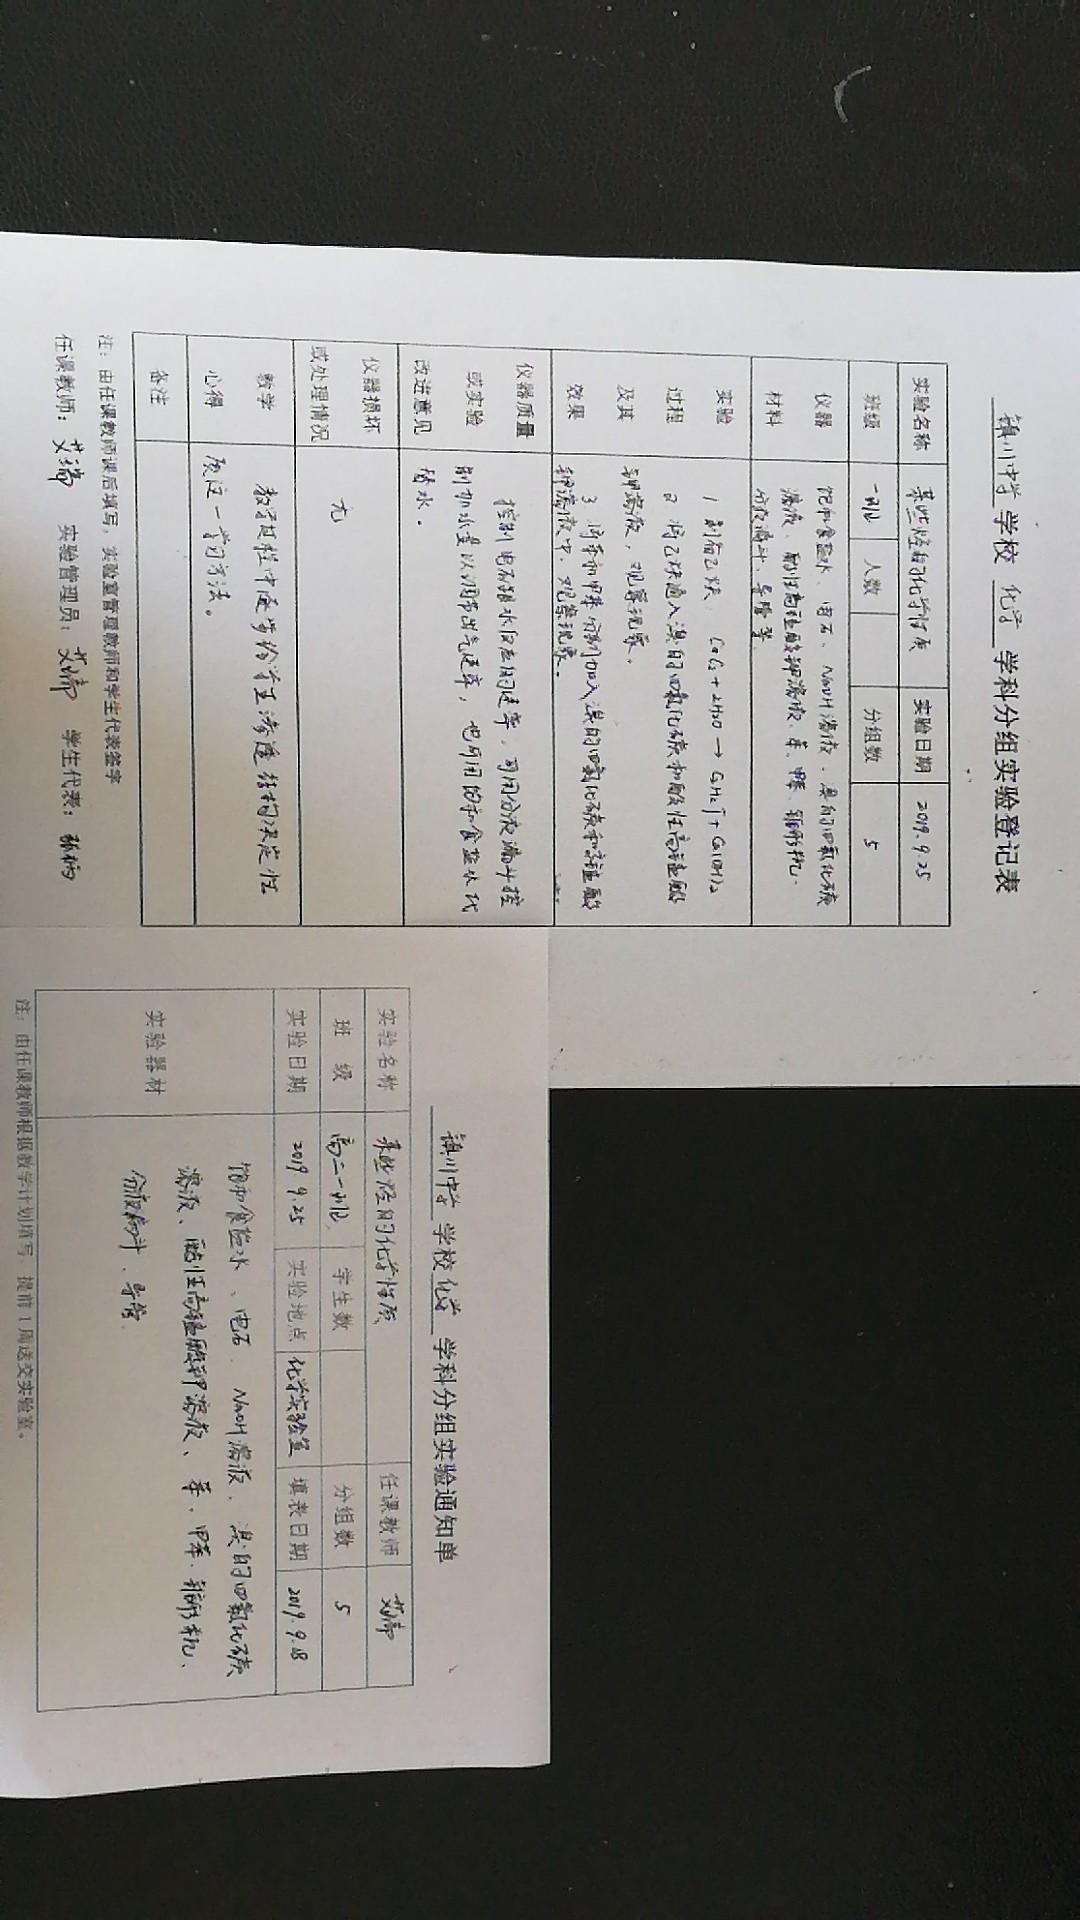 镇川中学 学校 化学 学科分组实验登记表
实验名称 某些烃的化学性质 实验日期 2019.9.25
班级 一班 人数 分组数 5
仪器材料 饱和食盐水、电石、NaOH溶液、溴的四氯化碳
溶液、酸性高锰酸钾溶液、苯、甲苯、锥形瓶、
分液漏斗、导管等
实验过程及其效果 1 制备乙炔 CaC2+2H2O→C2H2↑+Ca(OH)2
2 将乙炔通入溴的四氯化碳和酸性高锰酸
钾溶液，观察现象。
3 将苯和甲苯分别加入溴的四氯化碳和高锰酸
钾溶液中，观察现象。
仪器质量或实验改进意见 控制电石跟水反应的速率，可用分液漏斗控
制加水量以调节出气速率，也可用饱和食盐水代
替水。
仪器损坏或处理情况 无
教学心得 教学过程中逐步给学生渗透结构决定性
质这一学习方法。
备注
注：由任课教师课后填写，实验室管理教师和学生代表签字
任课教师： 实验管理员： 学生代表：
镇川中学 学校 化学 学科分组实验通知单
实验名称 某些烃的化学性质 任课教师
班 级 高二一班 学生数 分组数 5
实验日期 2019 9.25 实验地点 化学实验室 填表日期 2019.9.18
实验器材 饱和食盐水、电石、NaOH溶液、溴的四氯化碳
溶液、酸性高锰酸钾溶液、苯、甲苯、锥形瓶、
分液漏斗、导管
注：由任课教师根据教学计划填写，提前1周送交实验室。